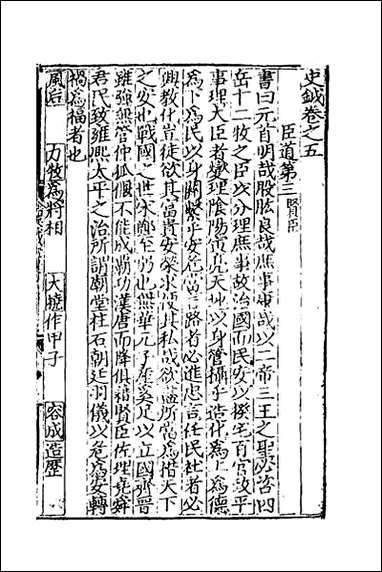 史鉞卷之五
臣道第三 賢臣
書曰元首明哉股肱良哉庶事康哉以二帝三王之聖必咨四
岳十二牧之臣以分理庶事故治國而民安以揆宅百官政平
事理大臣者燮理陰陽寅亮天地以身管攝乎造化為上為德
為下為民以身關繫乎安危當言路者必進忠言任民社者必
興教化豈徒欲其富貴安榮求便其私哉欲適所當為措天下
之安也戰國之世宋鄭至弱也無華元子產奚足以立國齊晉
雖強無管仲狐偃不能成霸功漢唐而降俱籍賢臣佐理堯舜
君民致雍熙太平之治所謂廟堂柱石朝廷羽儀以危為安轉
禍為福者也
風后 力牧為將相 大撓作甲子 容成造歷